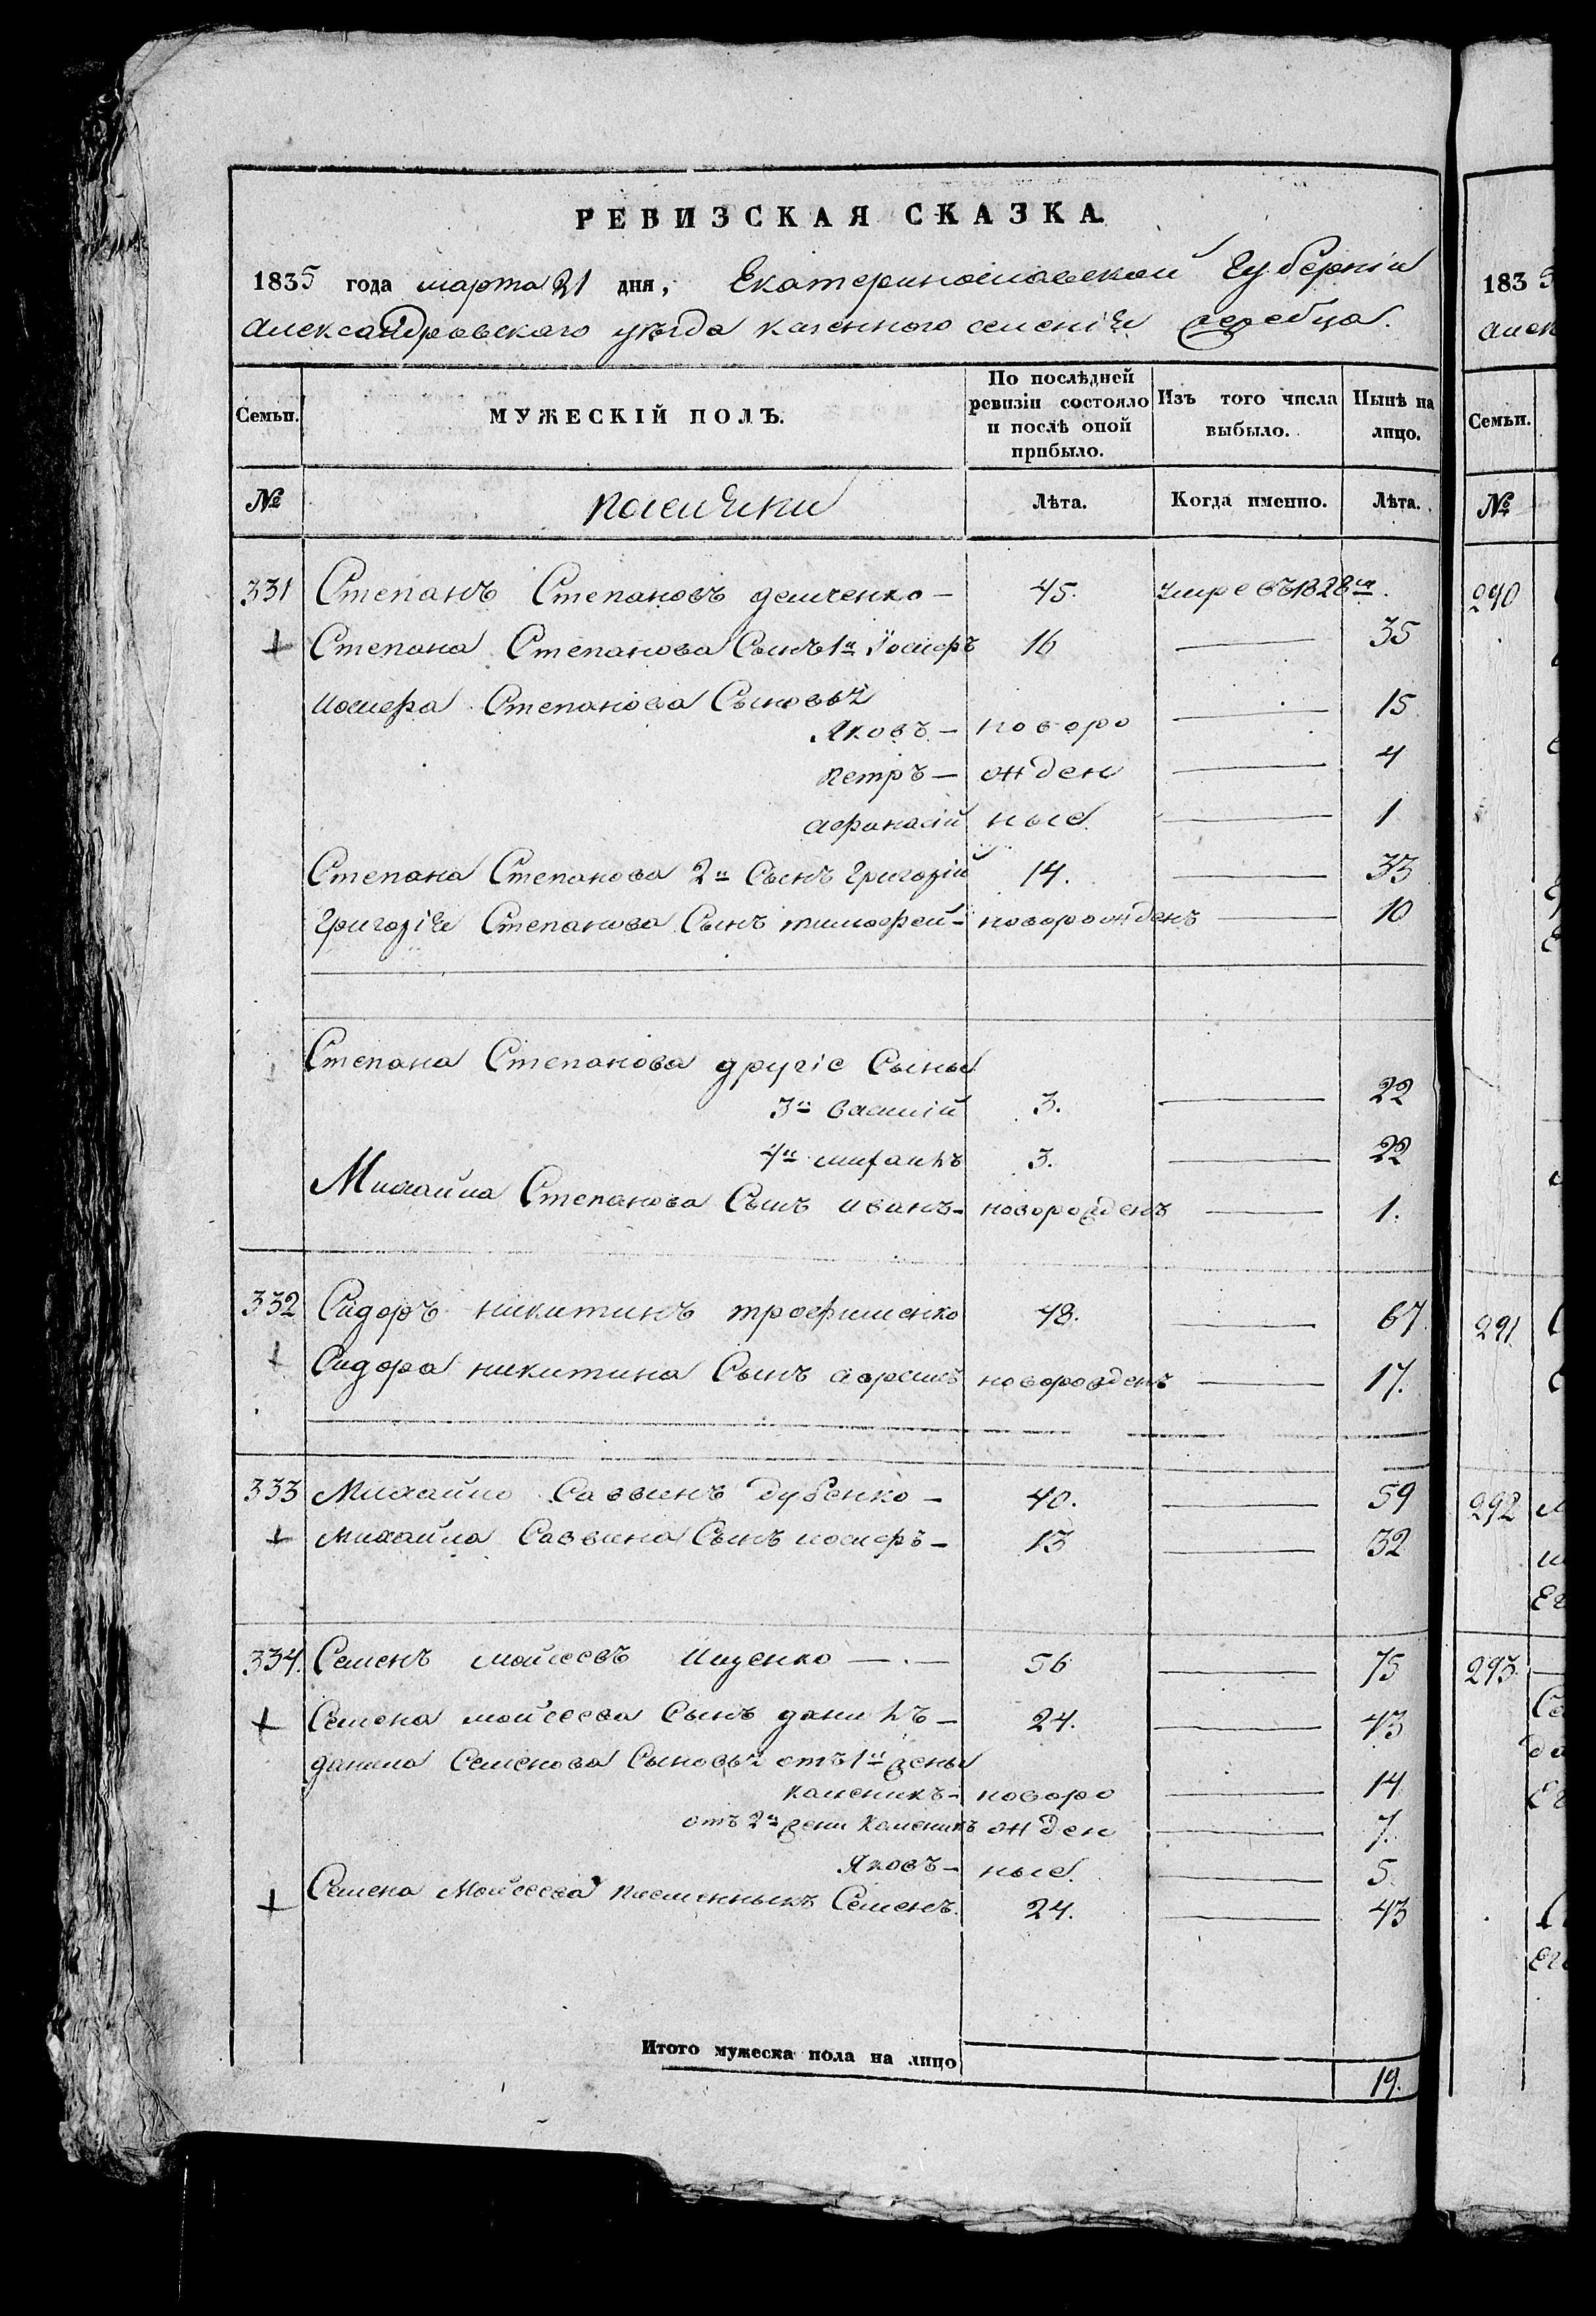 РЕВИЗСКАЯ СКАЗКА.
1835 года марта 21 дня, Екатеринославской Губерніи
Александровскаго уѣзда казенного селенія Жеребца.
Семьи. МУЖЕСКІЙ ПОЛЪ. По послѣдней ревизіи состояло и послѣ оной прибыло. Изъ того числа выбыло. Нынѣ на лицо.
№ Лѣта. Когда именно. Лѣта.
331 Степанъ Степановъ демченко — 45. умре въ 1828м.
Степана Степанова Сынъ 1й Іосифъ 16 — 35
иосифа Степанова Сыновья
Яковъ — новоро — 15
петръ — жден — 4
афанасій ные — 1
Степана Степанова 2й Сынъ Григорій 14. — 33
Григорія Степанова Сынъ тимофей — новорожденъ — 10
Степана Степанова другіе Сыны
3й василій 3. — 22
4й михаилъ 3. — 22
Михайла Степанова Сынъ иванъ — новорожденъ — 1.
332 Сидоръ никитинъ трофименко 48. — 67
Сидора никитина Сынъ ефремъ новорожденъ — 17.
333 Михайло Саввинъ дубенко — 40. — 59
Михайла Саввина Сынъ иосифъ — 13 — 32
334. Семенъ мойсеевъ Ищенко — . — 56 — 75
Семена мойсеева Сынъ данилъ — 24. — 43
данила Семенова Сыновья отъ 1й жены
каленикъ — новоро — 14
отъ 2й жени Каленикъ жден — 7.
Яковъ — ные. — 5.
Семена Мойсеева племенныкъ Семенъ. 24. — 43
Итого мужеска пола на лицо 19.
183 5
Алек
Семьи.
№
290
291
292
293